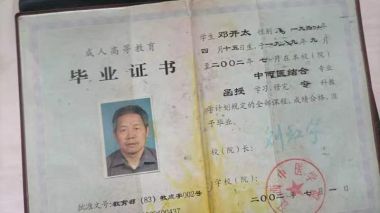 成人高等教育
毕业证书
批准文号：教育部（83）教成字002号
学生 邓开太 性别
四月十五日生，于一九九九年九月
至二00二年七月在本校（院）
中西医结合 专业
函授 学习，修完 专 科教
学计划规定的全部课程，成绩合格，准
予毕业。
校（院）长：
学校（院）：
二00二年七月一日